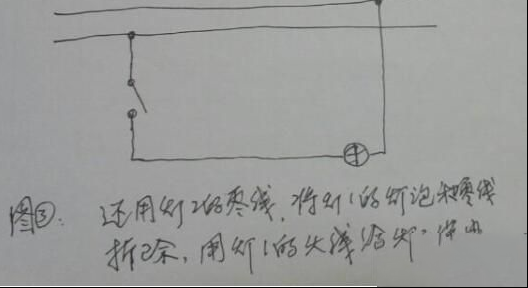 图③: 还用灯2的零线, 将灯1的灯泡和零线
拆除, 用灯1的火线给灯